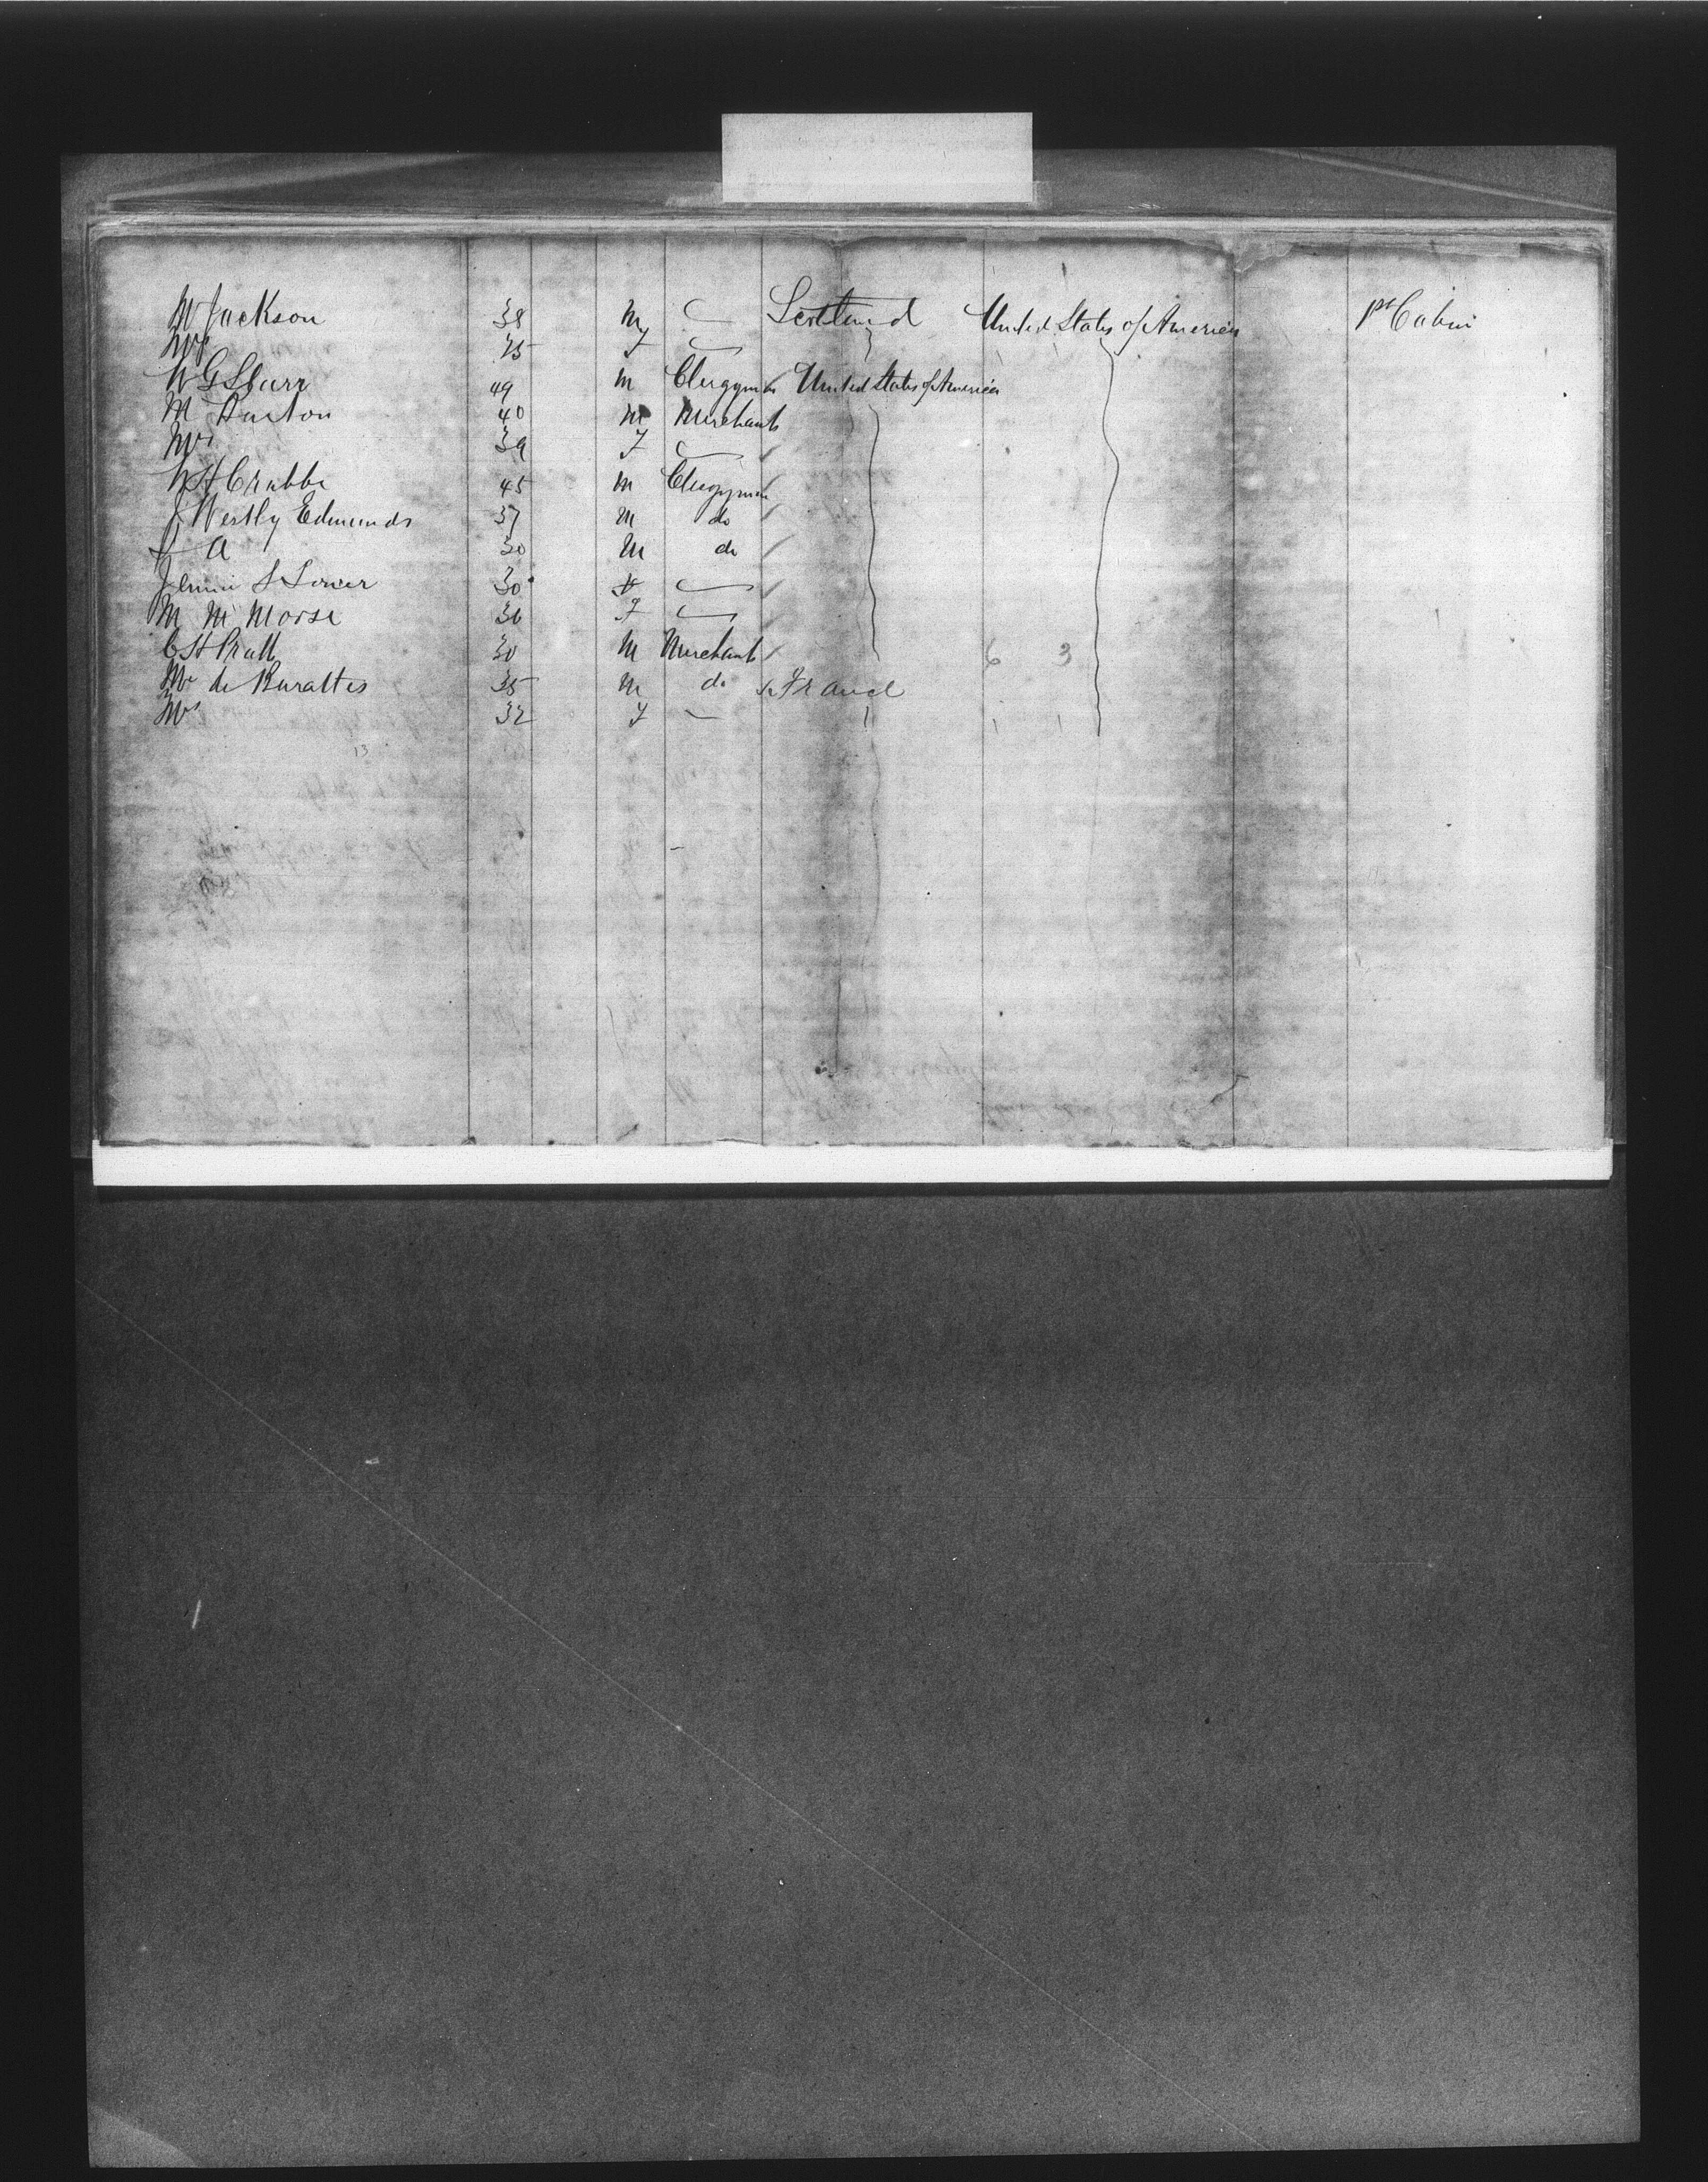 W Jackson 38 M Scotland United States of America 1st Cabin
Mrs 35 F
W G Starr 49 M Clergyman United States of America
M Burton 40 M Merchant
Mrs 39 F
W H Crabbe 45 M Clergyman
J Westly Edmunds 37 M do
J A 30 M do
Jennie S Tower 30 F
M M Morse 36 F
C H Pratt 30 M Merchant 6 3
Mr de Buraltes 35 M do France
Mrs 32 F 1 1 1
13